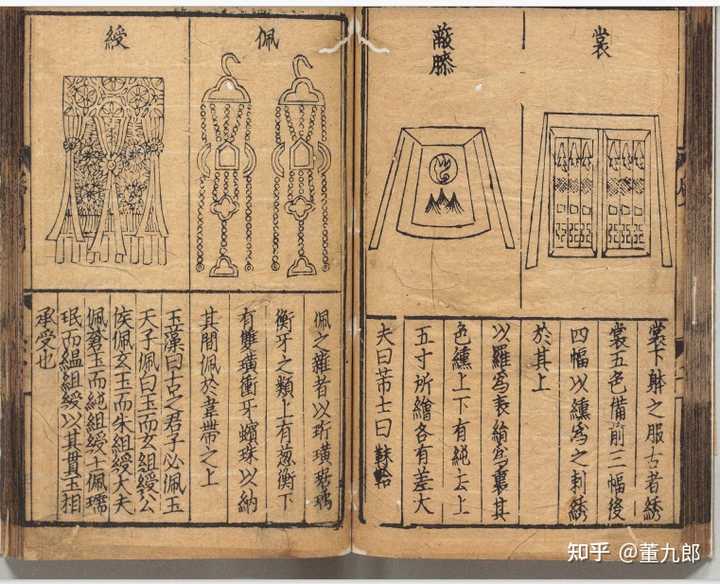 裳
裳下躰之服古者綉
裳五色備前三幅後
四幅以纁爲之刺綉
於其上
蔽膝
以羅爲表綃爲裏其
色纁上下有純去上
五寸所繪各有差大
夫曰芾士曰韎韐
佩
佩之雜者以珩璜琚瑀
衡牙之類上有葱衡下
有雙璜衝牙蠙珠以納
其間佩於韋帶之上
綬
玉藻曰古之君子必佩玉
天子佩白玉而玄組綬公
侯佩玄玉而朱組綬大夫
佩蒼玉而純組綬士佩瓀
珉而緼組綬以其貫玉相
承受也
知乎 @董九郎